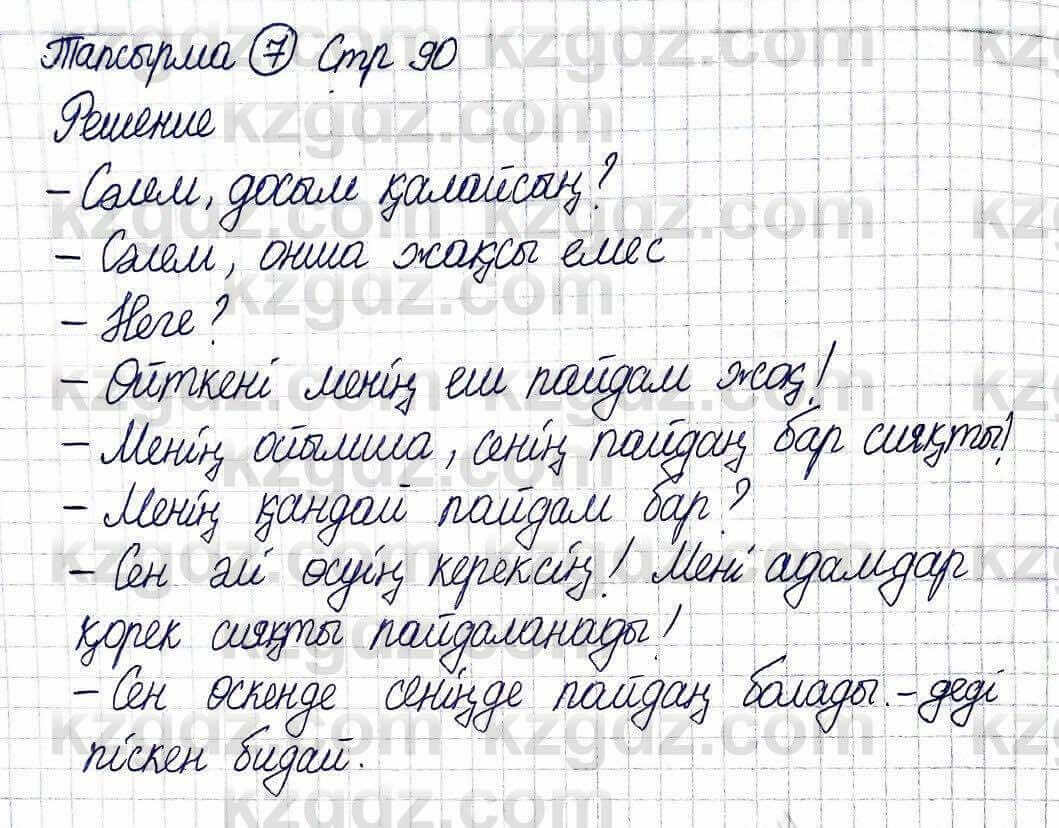 Тапсырма 7 Стр 90
Решение
- Сәлем, досым қалайсың?
- Сәлем, онша жақсы емес
- Неге?
- Өйткені менің еш пайдам жоқ!
- Менің ойымша, сенің пайдаң бар сияқты!
- Менің қандай пайдам бар?
- Сен әлі өсуің керексің! Мені адамдар
қорек сияқты пайдаланады!
- Сен өскенде сеніңде пайдаң болады. - деді
піскен бидай.
kzgdz.com